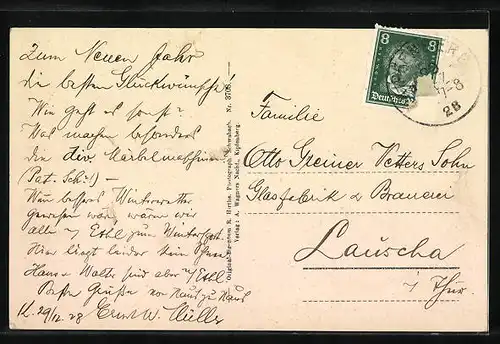 Zum Neuen Jahr
die besten Glückwünsche!
Wie geht es sonst?
Was machen besonders
die div. Märbelmaschinen
(Pat. Sch.!) —
Wenn besseres Winterwetter
gewesen wär, wären wir
alle n/ Ethl. zum Wintersport.
Hier liegt leider kein Schnee
Hans & Walter sind aber n/ Ethl.
Beste Grüße von Haus zu Haus
29/12. 28 Ernst W. Müller
Original-Eigentum R. Herthe, Photograph, Schwabach. Nr. 3708.
Verlag: A. Wagners Nachf., Kipfenberg.
8 8
Deutsches
11-8
28
Familie
Otto Greiner Vetters Sohn
Glasfabrik & Brauerei
Lauscha
i/ Thür.